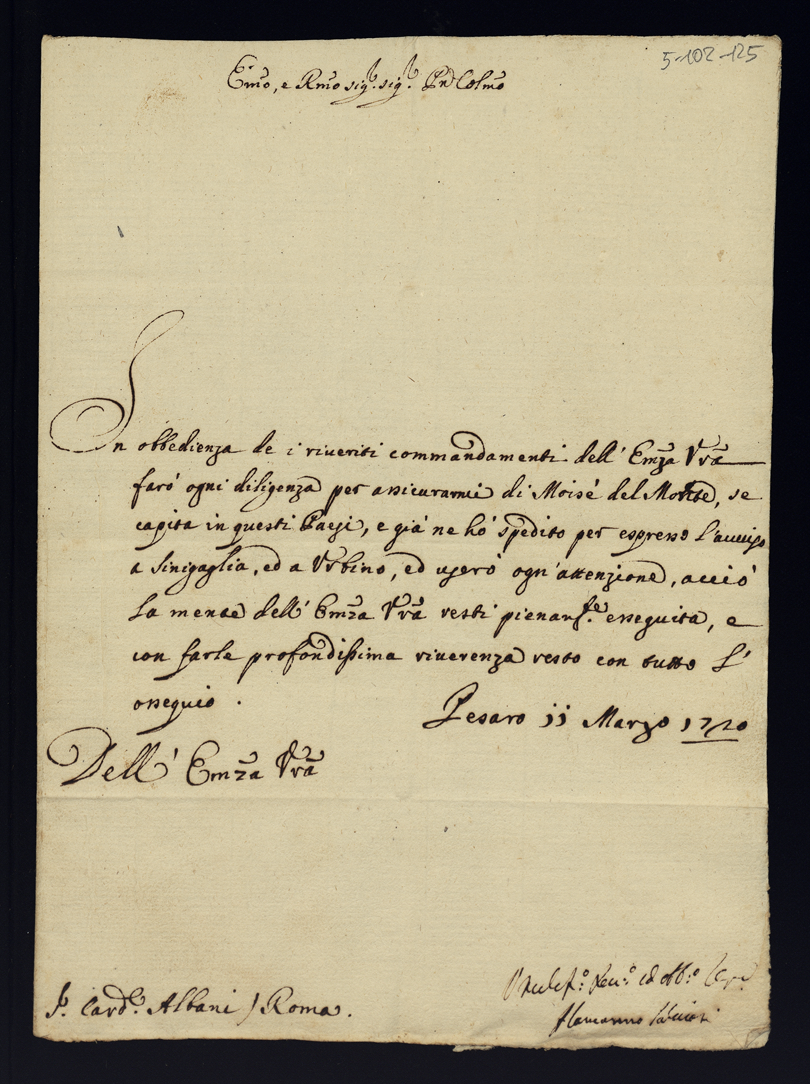 5-102-125
Emo, e Rmo sigr. sigr. Pnē Colmo
In obbedienza de i riveriti commandamenti dell' Emza Vrā
farò ogni diligenza per assicurarmi di Moisè del Monte, se
capita in questi Paesi, e già ne hò spedito per espresso l'avviso
a Sinigaglia, ed a Urbino, ed userò ogn'attenzione, acciò
la mente dell' Emza Vrā resti pienamte. esseguita, e
con farle profondissima riverenza resto con tutto l'
ossequio.
Pesaro 11 Marzo 1720
Dell' Emza Vrā
Sr. Cardl. Albani / Roma.